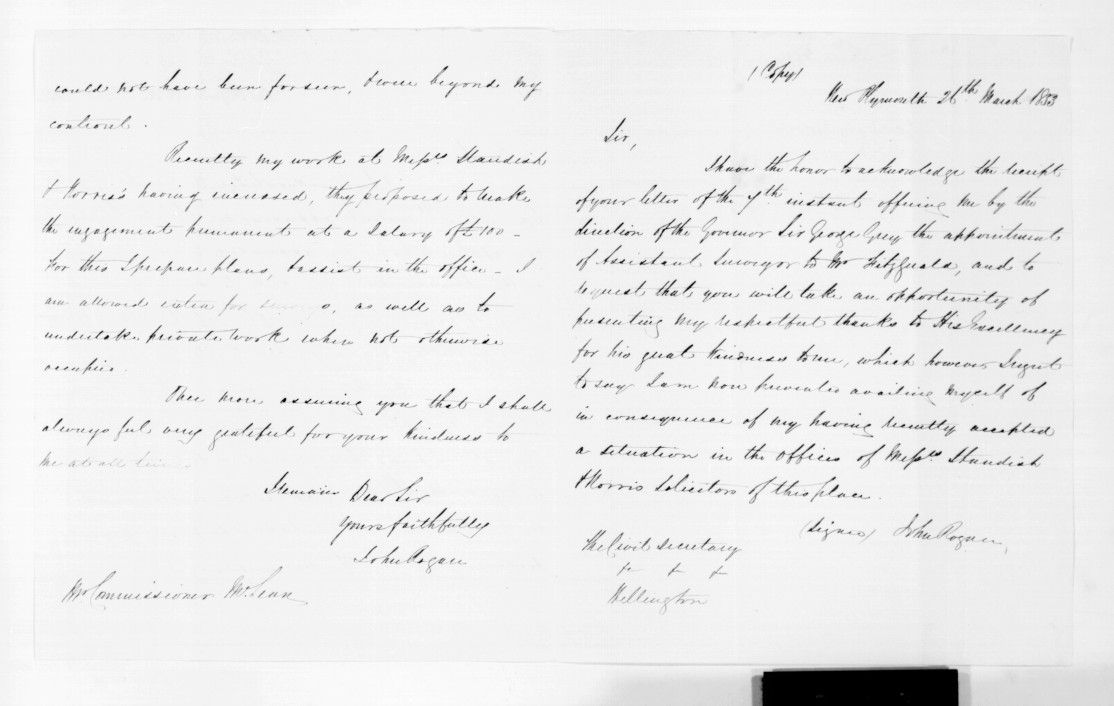 could not have been forseen, & were beyond my
controul.
Recently my work at Messrs. Standish
& Norris's having increased, they proposed to make
the engagement permanent at a Salary of £100 -
for this I prepare plans, & assist in the office - I
am allowed extra for surveys, as well as to
undertake private work when not otherwise
occupied.
Once more assuring you that I shall
always feel very grateful for your kindness to
me at all times
I remain Dear Sir
Yours faithfully
John Rogan
Mr. Commissioner McLean
(Copy)
New Plymouth 26th March 1853
Sir,
I have the honor to acknowledge the receipt
of your letter of the 7th instant offering me by the
direction of the Governor Sir George Grey the appointment
of Assistant Surveyor to Mr Fitzgerald, and to
request that you will take an opportunity of
presenting my respectful thanks to His Excellency
for his great kindness to me, which however I regret
to say I am now prevented availing myself of
in consequence of my having recently accepted
a situation in the offices of Messrs. Standish
& Norris Solicitors of this place.
(signed) John Rogan,
The Civil Secretary
+ + +
Wellington